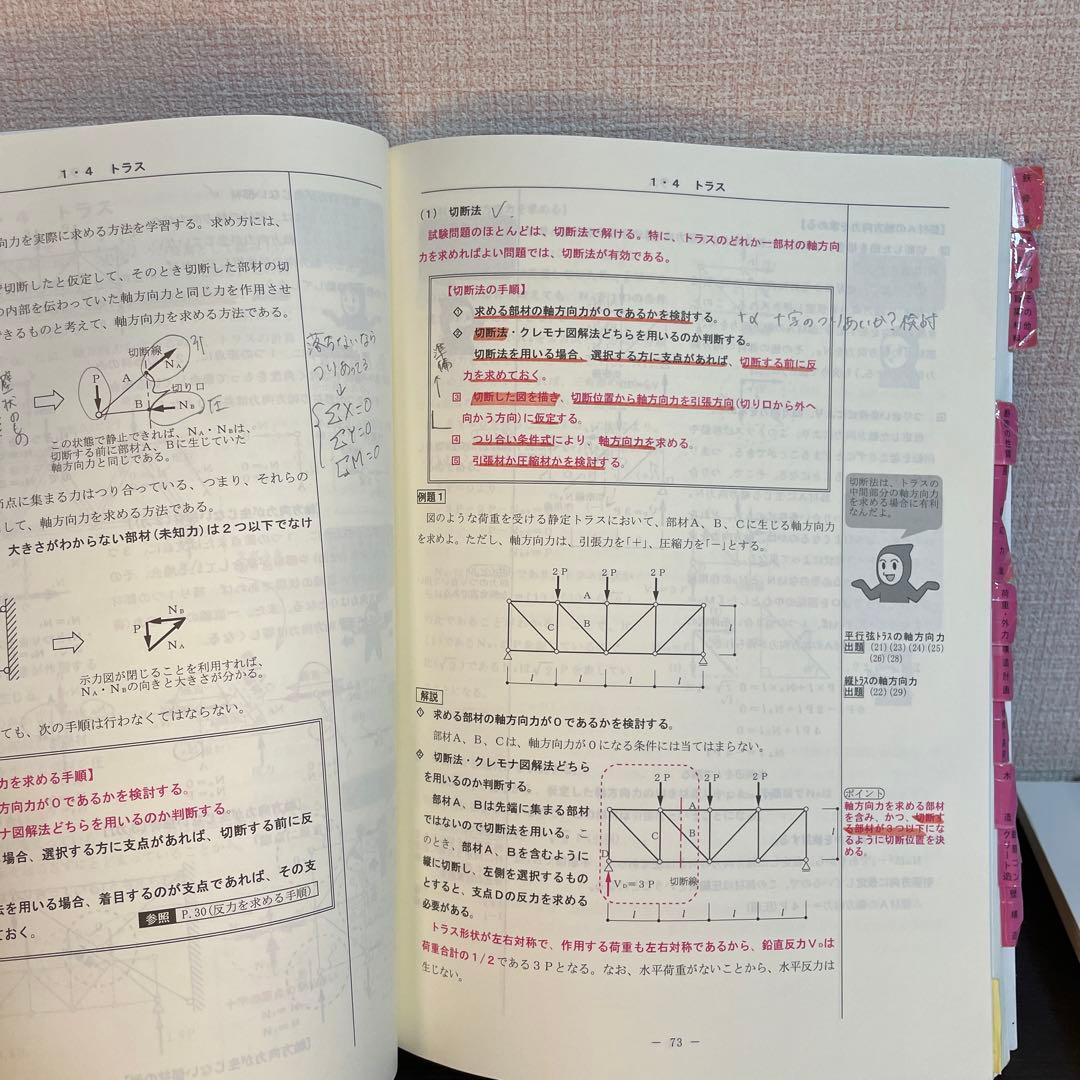 1・4 トラス
向力を実際に求める方法を学習する。求め方には、
切断したと仮定して、そのとき切断した部材の切
内部を伝わっていた軸方向力と同じ力を作用させ
できるものと考えて、軸方向力を求める方法である。
切断線
引
NA
P
A
切り口
B
NB
圧
この状態で静止できれば、NA・NBは、
切断する前に部材A、Bに生じていた
軸方向力と同じである。
落ちないなら
つりあってる
↓
ΣX=0
ΣY=0
ΣM=0
節点に集まる力はつり合っている、つまり、それらの
して、軸方向力を求める方法である。
大きさがわからない部材(未知力)は2つ以下でなけ
NB
P
NA
示力図が閉じることを利用すれば、
NA・NBの向きと大きさが分かる。
ても、次の手順は行わなくてはならない。
力を求める手順】
方向力が0であるかを検討する。
ナ図解法どちらを用いるのか判断する。
場合、選択する方に支点があれば、切断する前に反
法を用いる場合、着目するのが支点であれば、その支
ておく。
参照 P.30(反力を求める手順)
1・4 トラス
(1) 切断法
試験問題のほとんどは、切断法で解ける。特に、トラスのどれか一部材の軸方向
力を求めればよい問題では、切断法が有効である。
【切断法の手順】
1 求める部材の軸方向力が0であるかを検討する。
+α 十字のつりあいか?検討
2 切断法・クレモナ図解法どちらを用いるのか判断する。
準備
切断法を用いる場合、選択する方に支点があれば、切断する前に反
力を求めておく。
3 切断した図を描き、切断位置から軸方向力を引張方向(切り口から外へ
向かう方向)に仮定する。
4 つり合い条件式により、軸方向力を求める。
5 引張材か圧縮材かを検討する。
切断法は、トラスの
中間部分の軸方向力
を求める場合に有利
なんだよ。
例題1
図のような荷重を受ける静定トラスにおいて、部材A、B、Cに生じる軸方向力
を求めよ。ただし、軸方向力は、引張力を「+」、圧縮力を「−」とする。
2P 2P 2P
A
C B
l
l l l l
平行弦トラスの軸方向力
出題 (21)(23)(24)(25)
(26)(28)
縦トラスの軸方向力
出題 (22)(29)
解説
1 求める部材の軸方向力が0であるかを検討する。
部材A、B、Cは、軸方向力が0になる条件には当てはまらない。
2 切断法・クレモナ図解法どちら
を用いるのか判断する。
部材A、Bは先端に集まる部材
ではないので切断法を用いる。こ
のとき、部材A、Bを含むように
縦に切断し、左側を選択するもの
とすると、支点Dの反力を求める
必要がある。
2P 2P 2P
A
C B
D
l
VD=3P 切断線
l l l l
ポイント
軸方向力を求める部材
を含み、かつ、切断す
る部材が3つ以下にな
るように切断位置を決
める。
トラス形状が左右対称で、作用する荷重も左右対称であるから、鉛直反力VDは
荷重合計の1/2である3Pとなる。なお、水平荷重がないことから、水平反力は
生じない。
− 73 −
荷重・外力
構造計画